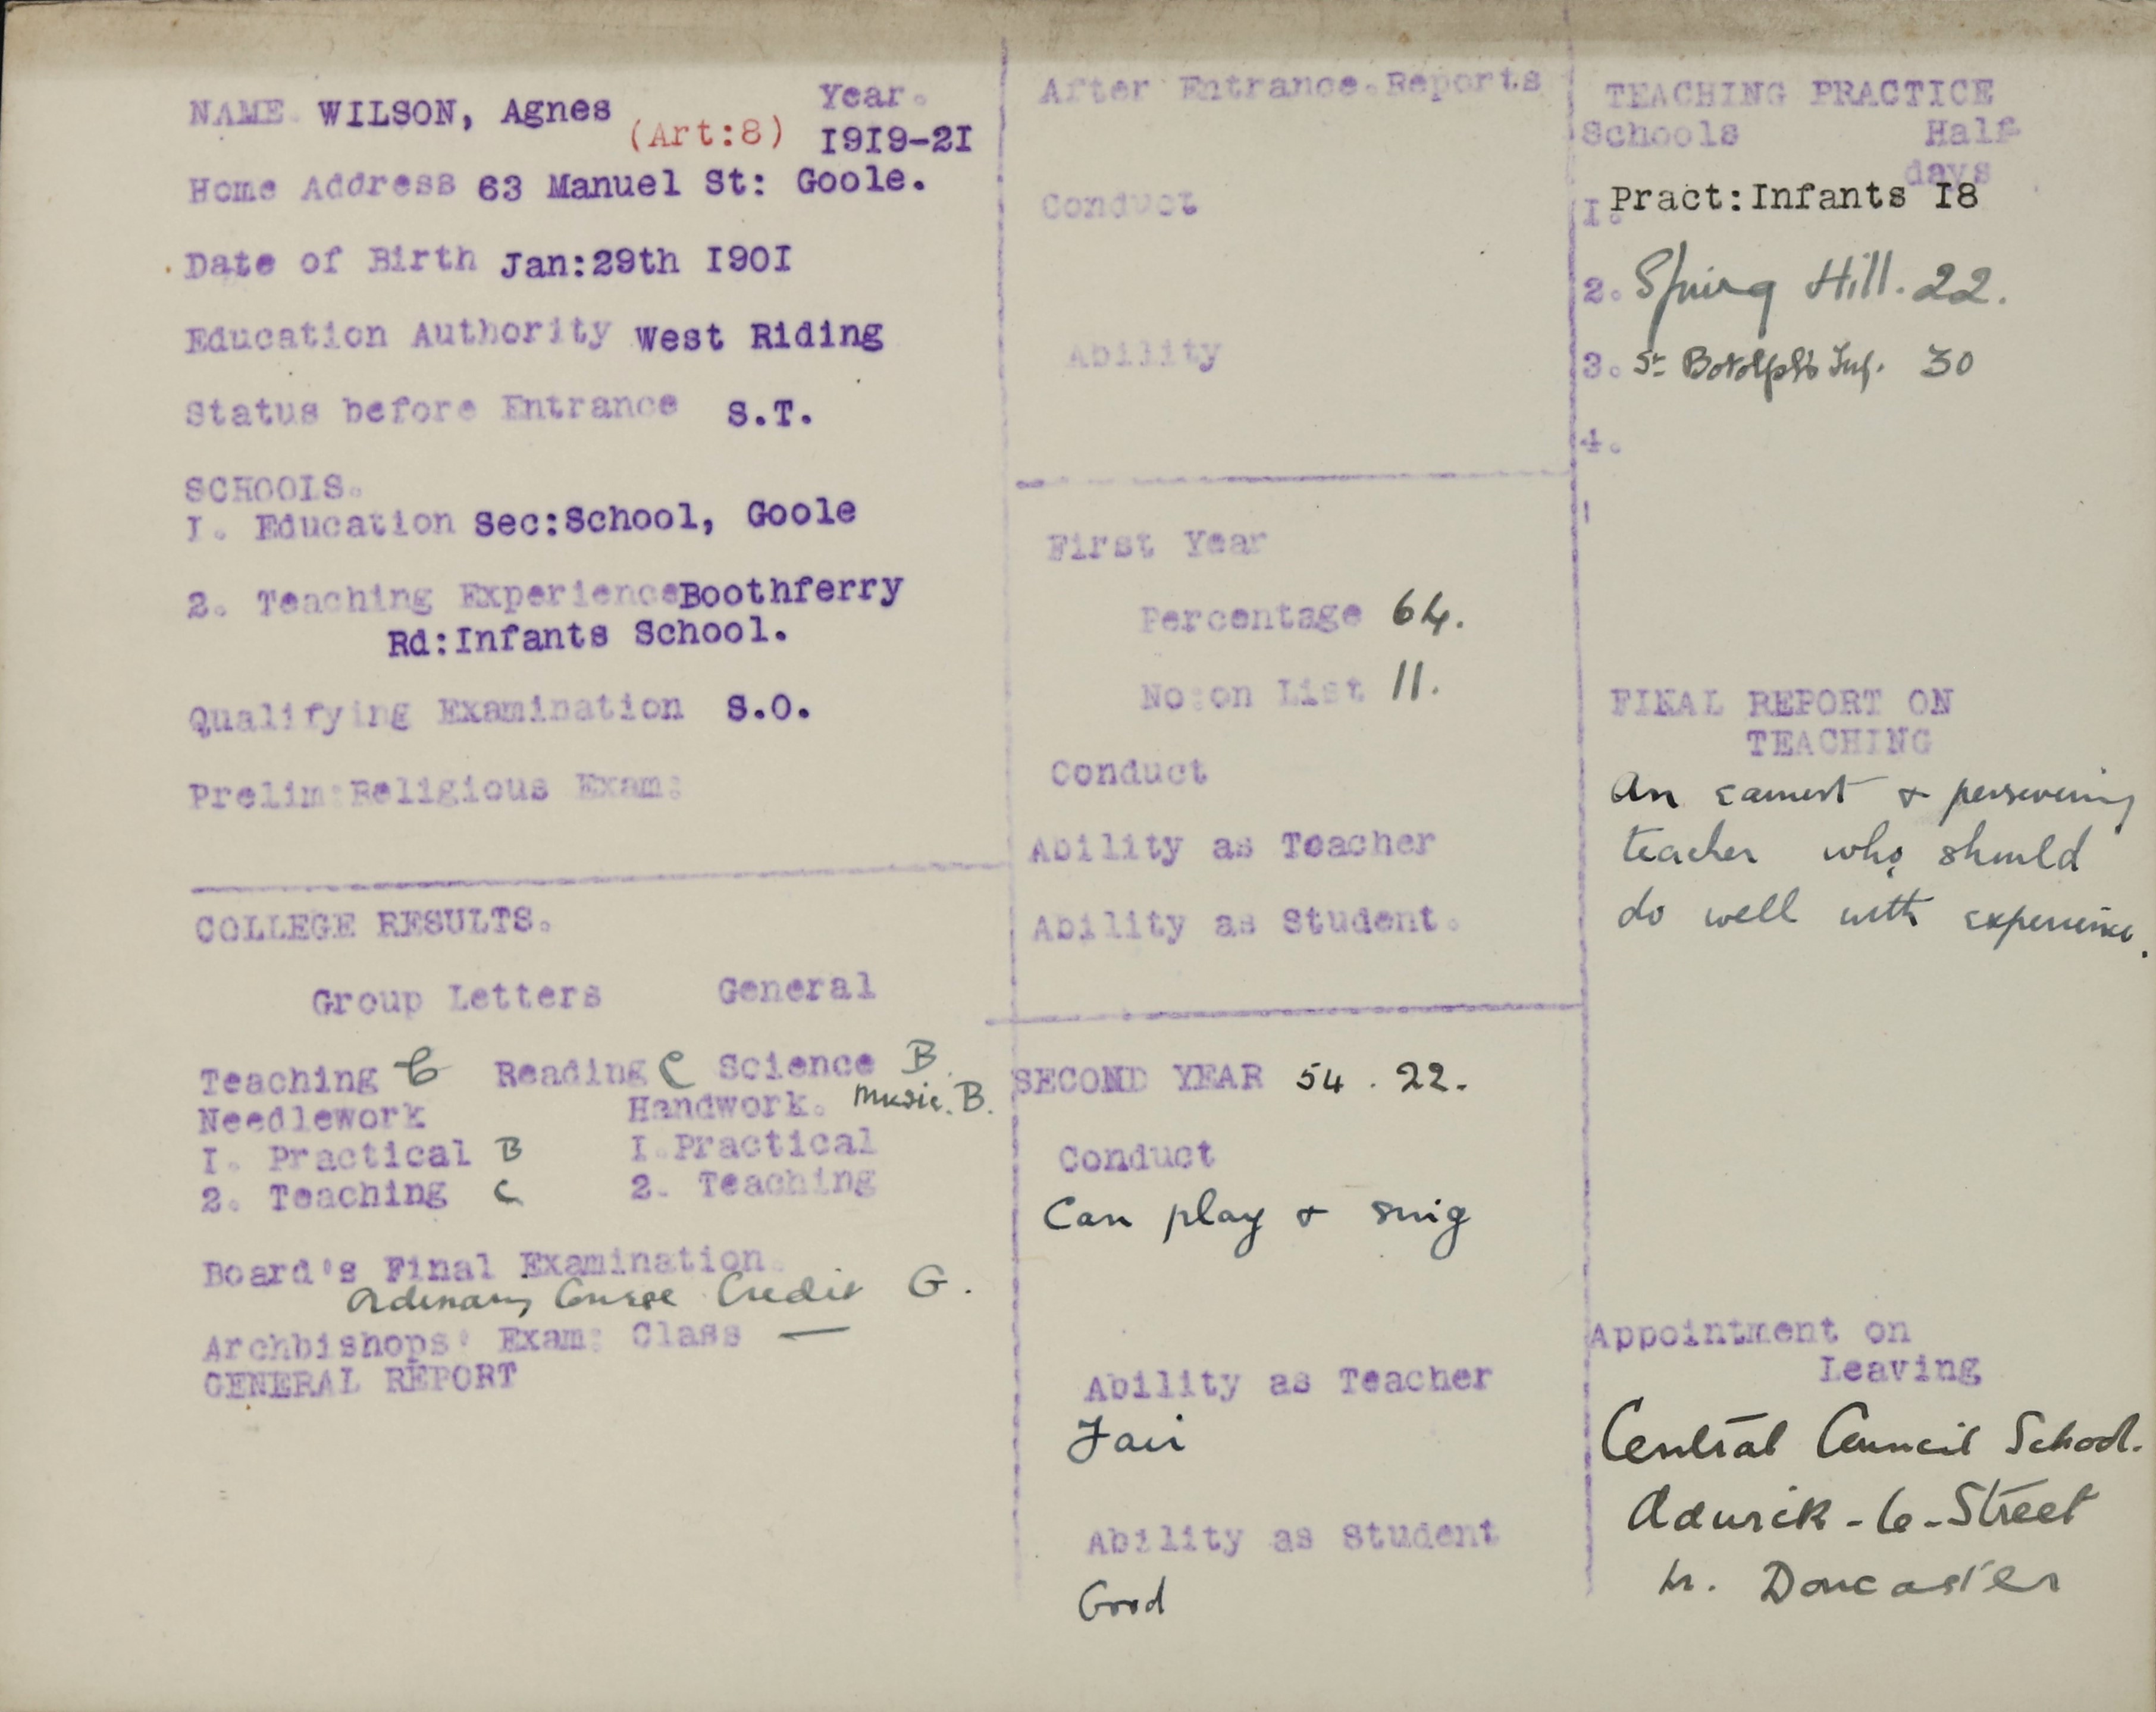 NAME. WILSON, Agnes (Art:8) Year.
I9I9-2I
Home Address 63 Manuel St: Goole.
Date of Birth Jan:29th I90I
Education Authority West Riding
Status before Entrance S.T.
SCHOOLS.
I. Education Sec:School, Goole
2. Teaching Experience Boothferry
Rd:Infants School.
Qualifying Examination S.O.
Prelim:Religious Exam:
COLLEGE RESULTS.
Group Letters General
Teaching C Reading C Science B.
Needlework Handwork. Music. B.
I. Practical B I.Practical
2. Teaching C 2. Teaching
Board's Final Examination.
Ordinary Course Credit G.
Archbishops' Exam: Class —
GENERAL REPORT
After Entrance.Reports
Conduct
Ability
First Year
Percentage 64.
No:on List 11.
Conduct
Ability as Teacher
Ability as Student.
SECOND YEAR 54 . 22.
Conduct
Can play & sing
Ability as Teacher
Fair
Ability as Student
Good
TEACHING PRACTICE
Schools Half
days
I. Pract:Infants I8
2. Spring Hill. 22.
3. St Botolph's Inf. 30
4.
FINAL REPORT ON
TEACHING
An earnest & persevering
teacher who should
do well with experience.
Appointment on
Leaving
Central Council School.
Adwick-le-Street
Nr. Doncaster